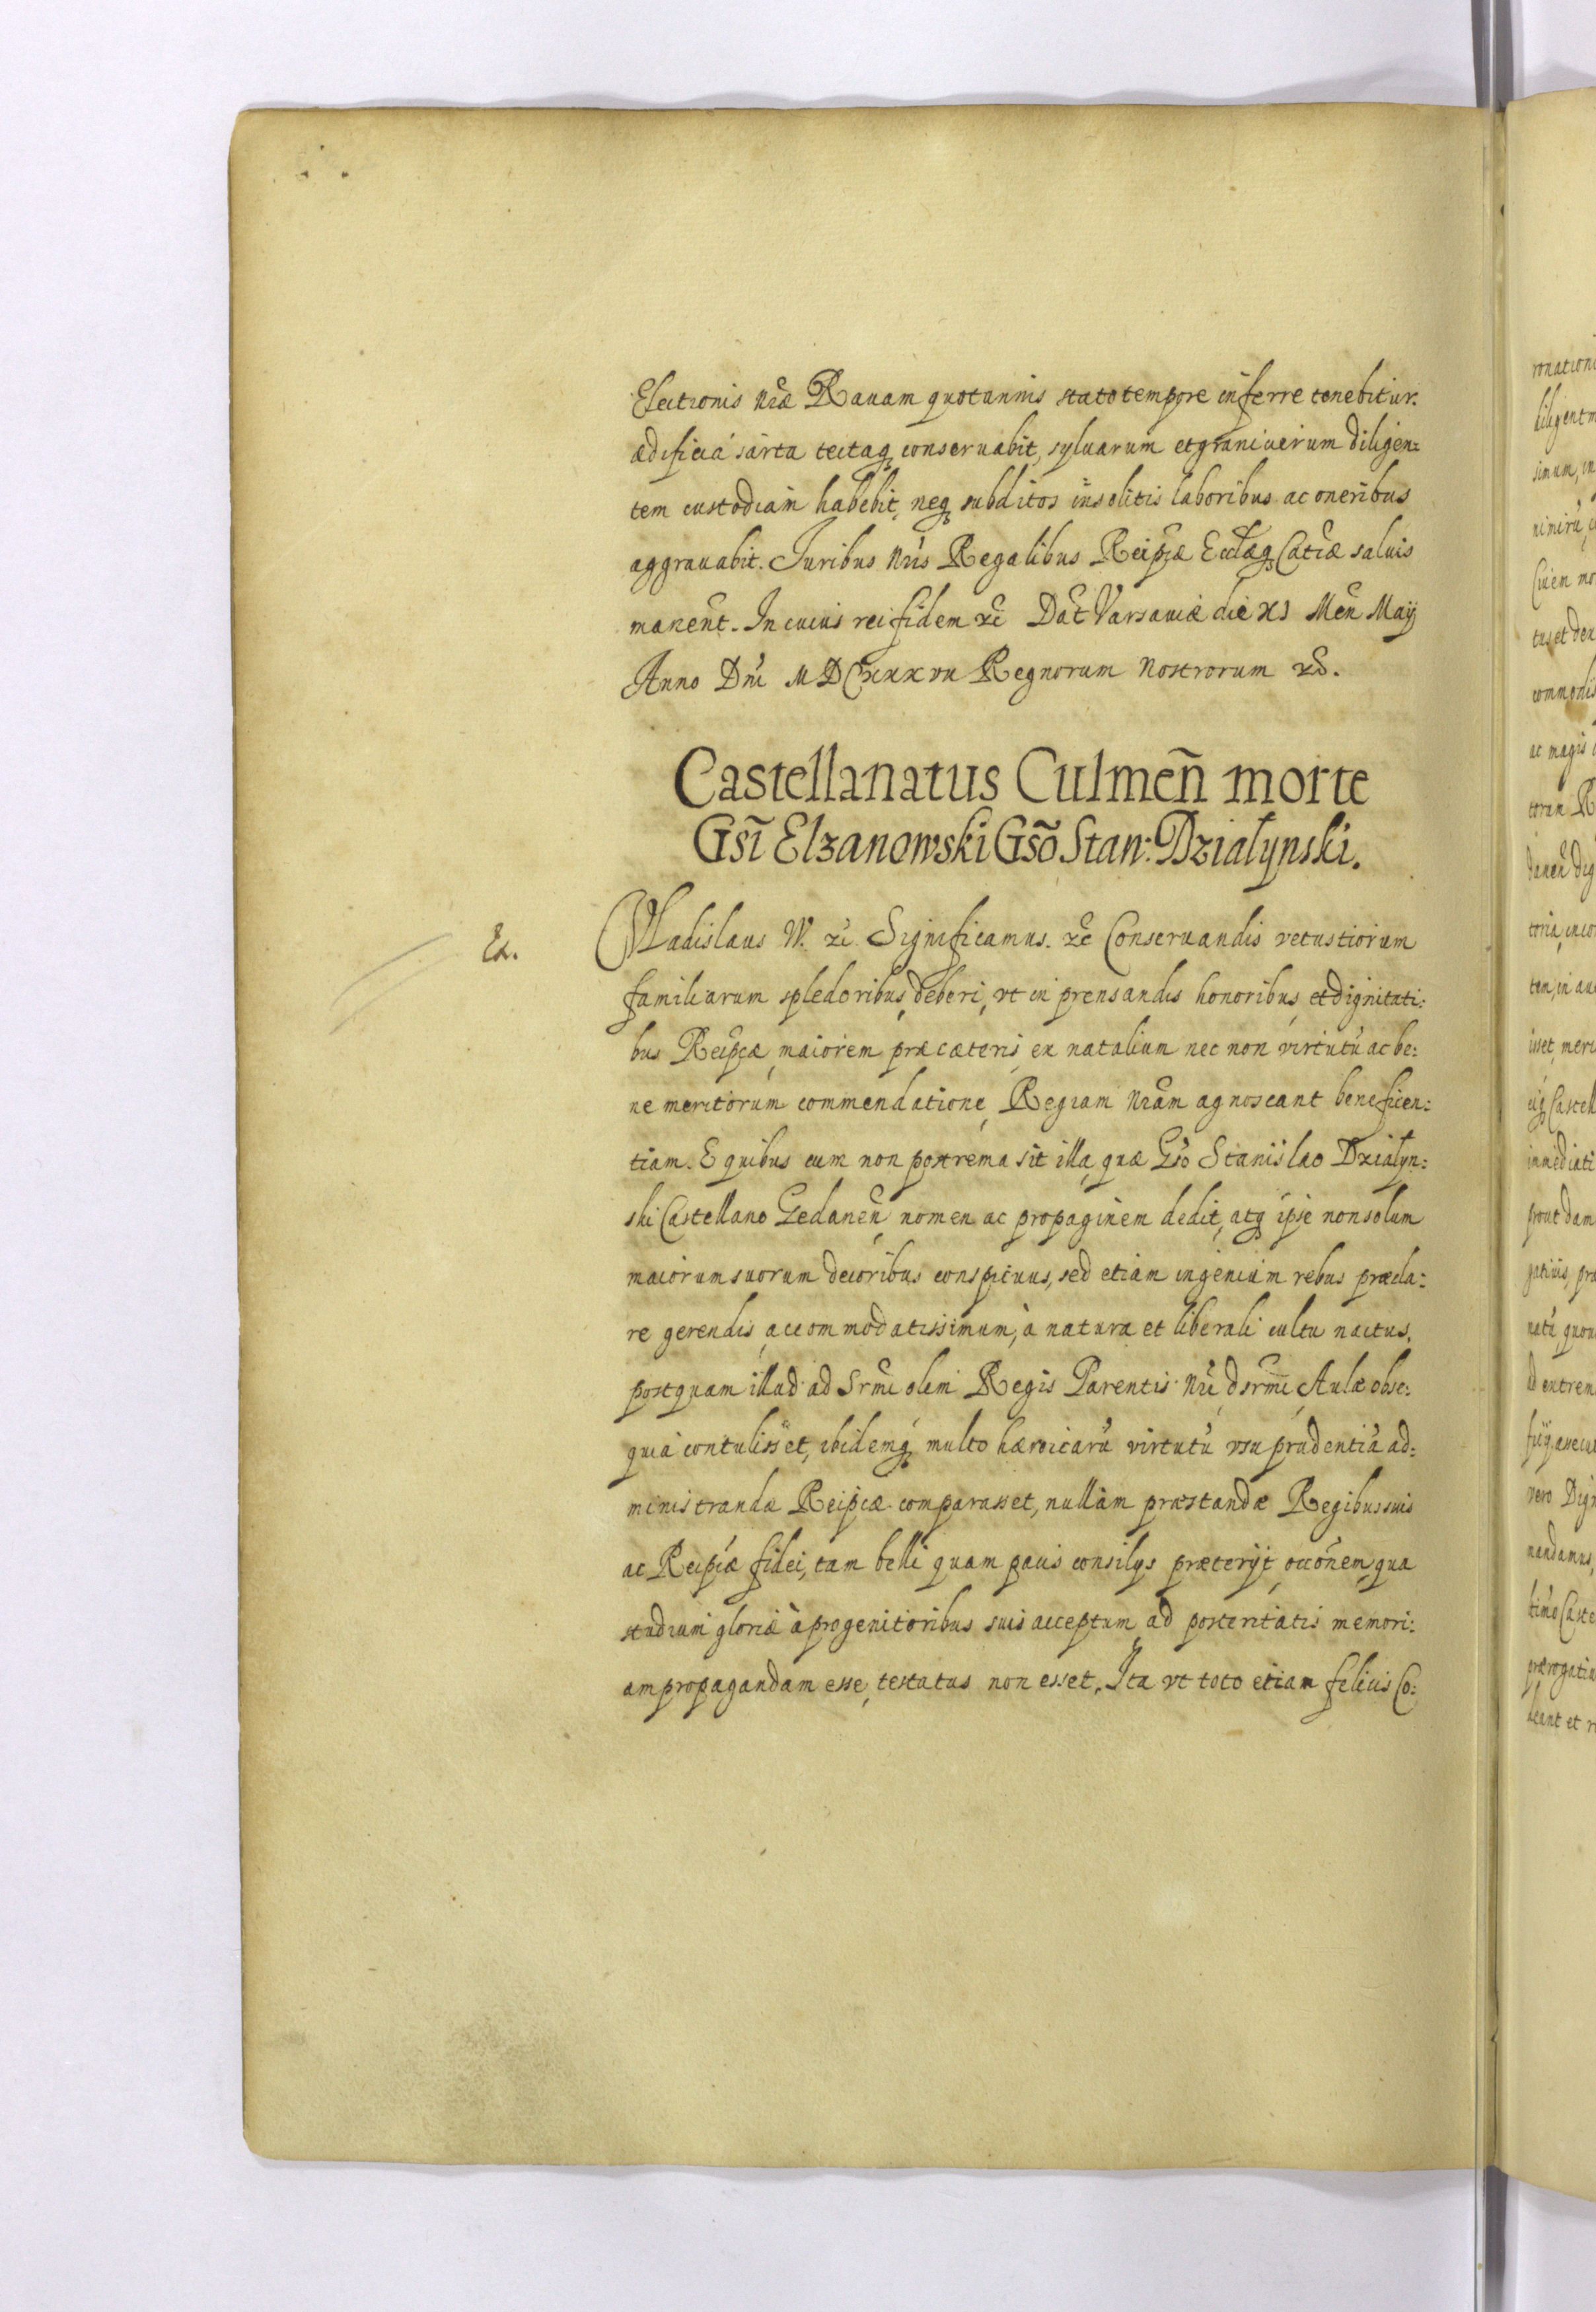 Electionis nr̃æ Rauam quotannis stato tempore inferre tenebitur.
ædificia sarta tectaq; conseruabit, syluarum et granicierum diligen:
tem custodiam habebit, neq; subditos insolitis laboribus ac oneribus
aggrauabit. Juribus nr̃is Regalibus Reipcæ Ecclæq; Catcæ saluis
manen̄t. In cuius rei fidem &c̃ Dat̃ Varsauiæ die XI Men̄ Maij
Anno Dn̄i MDCXXXVII Regnorum Nostrorum &c̃.
Castellanatus Culmeñ morte
Gsĩ Elzanowski Gsõ Stan: Działynski.
Ex.
Vladislaus IV. &c̃ Significamus. &c̃ Conseruandis vetustiorum
familiarum spledoribus, deberi, vt in prensandis honoribus, et dignitati:
bus Reipcæ, maiorem præ cæteris, ex natalium nec non virtutũ ac be:
ne meritorum commendatione, Regiam nr̃am agnoscant beneficen:
tiam. E quibus cum non postrema sit illa, quæ Gsõ Stanislao Działyn:
ski Castellano Gedaneñ, nomen ac propaginem dedit, atq; ipse non solum
maiorum suorum decoribus conspicuus, sed etiam ingenium rebus præcla:
re gerendis, accommodatissimum, à natura et liberali cultu nactus,
postquam illud ad Srm̃i olim Regis Parentis nr̃i dsrm̃i, Aulæ obse:
quia contulisset, ibidemq; multo hæroicarũ virtutũ vsu prudentiã ad:
ministrandæ Reipcæ comparasset, nullam præstandæ Regibus suis
ac Reipcæ fidei, tam belli quam pacis consilijs præterijt, occõnem, qua
studium gloriæ à progenitoribus suis acceptum, ad posteritatis memori:
am propagandam esse, testatus non esset. Ita vt toto etiam felicis Co: